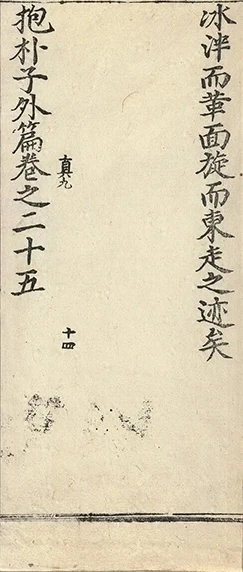 冰泮而革面旋而東走之迹矣
真九
十四
抱朴子外篇卷之二十五